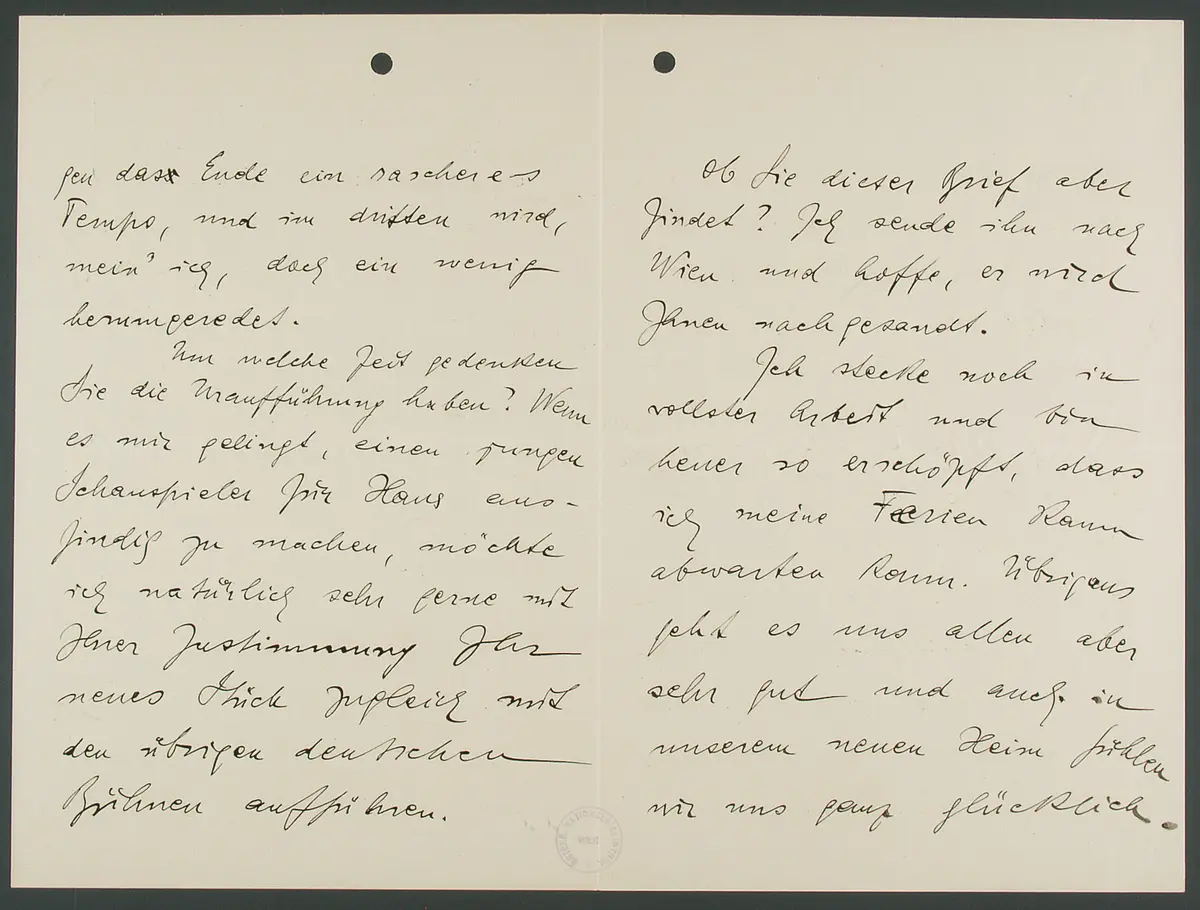 gen das Ende ein rascheres
Tempo, und im dritten wird,
mein' ich, doch ein wenig
herumgeredet.
Um welche Zeit gedenken
Sie die Uraufführung haben? Wenn
es mir gelingt, einen jungen
Schauspieler für Hans aus-
findig zu machen, möchte
ich natürlich sehr gerne mit
Ihrer Zustimmung Ihr
neues Stück zugleich mit
den übrigen deutschen
Bühnen aufführen.
Ob Sie dieser Brief aber
findet? Ich sende ihn nach
Wien und hoffe, er wird
Ihnen nachgesandt.
Ich stecke noch in
vollster Arbeit und bin
heuer so erschöpft, dass
ich meine Ferien kaum
abwarten kann. Übrigens
geht es uns allen aber
sehr gut und auch in
unserem neuen Heim fühlen
wir uns ganz glücklich.